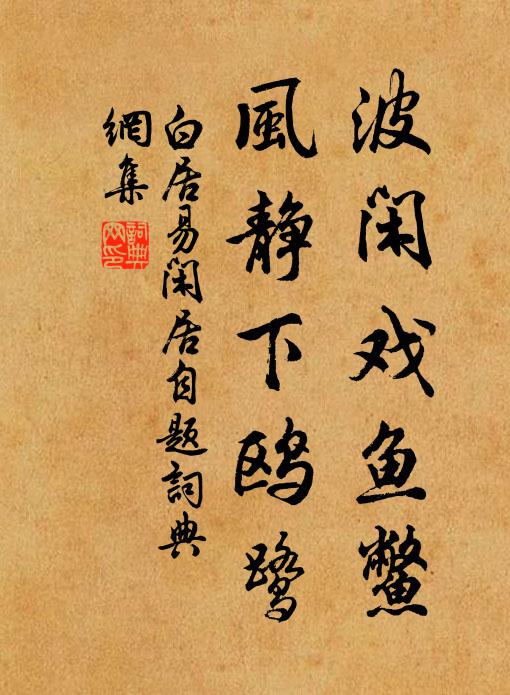 波闲戏鱼鳖
風静下鸥鹭
白居易闲居自题詞典
網集
詞典網印